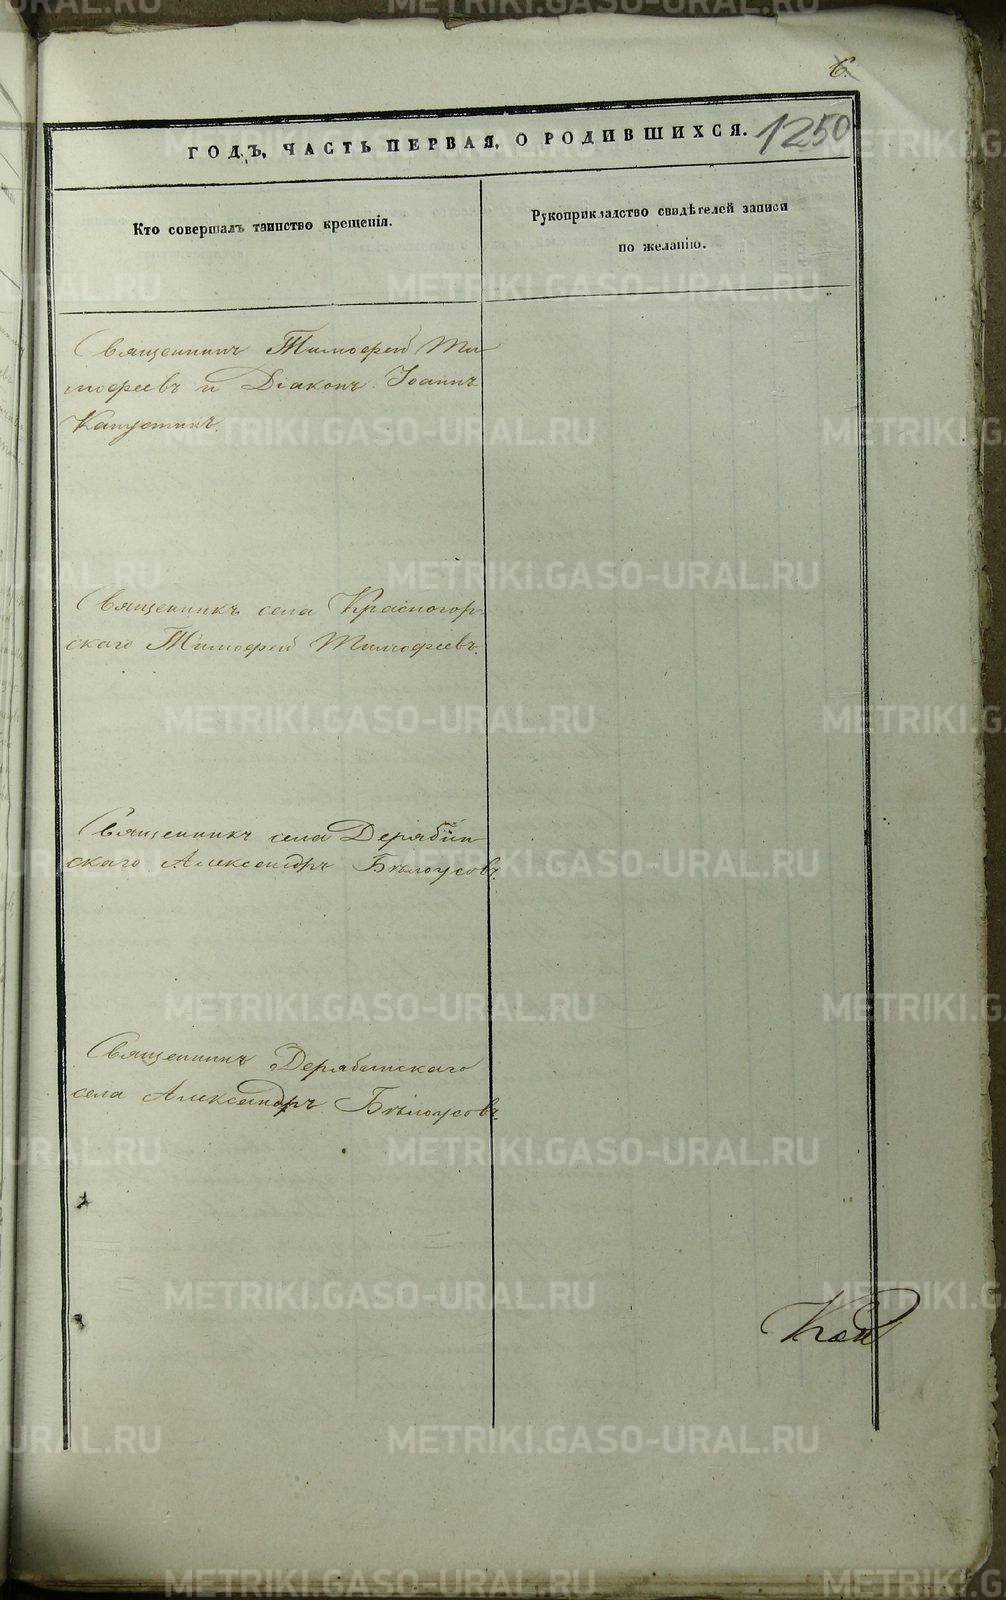 6.
ГОДЪ, ЧАСТЬ ПЕРВАЯ, О РОДИВШИХСЯ.
1250
Кто совершалъ таинство крещенія.
Рукоприкладство свидѣтелей записи
по желанію.
Священникъ Тимофей Ти-
мофеевъ и Діаконъ Іоаннъ
Капустинъ.
Священникъ села Красногор-
скаго Тимофей Тимофеевъ.
Священникъ села Дерябин
скаго Александръ Бѣлоусовъ.
Священникъ Дерябинскаго
села Александръ Бѣлоусовъ.
METRIKI.GASO-URAL.RU